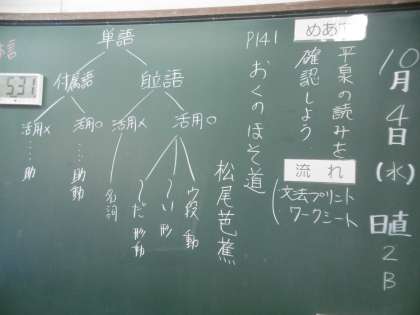 10月4日(水)
日直
2B
めあて
平泉の読みを
確認しよう.
流れ
文法プリント
ワークシート
P141
おくのほそ道
松尾芭蕉
単語
自立語
付属語
活用○
活用×
活用○
活用×
ウ段 動
〜い 形
〜だ 形動
名詞
助動
助
5:31